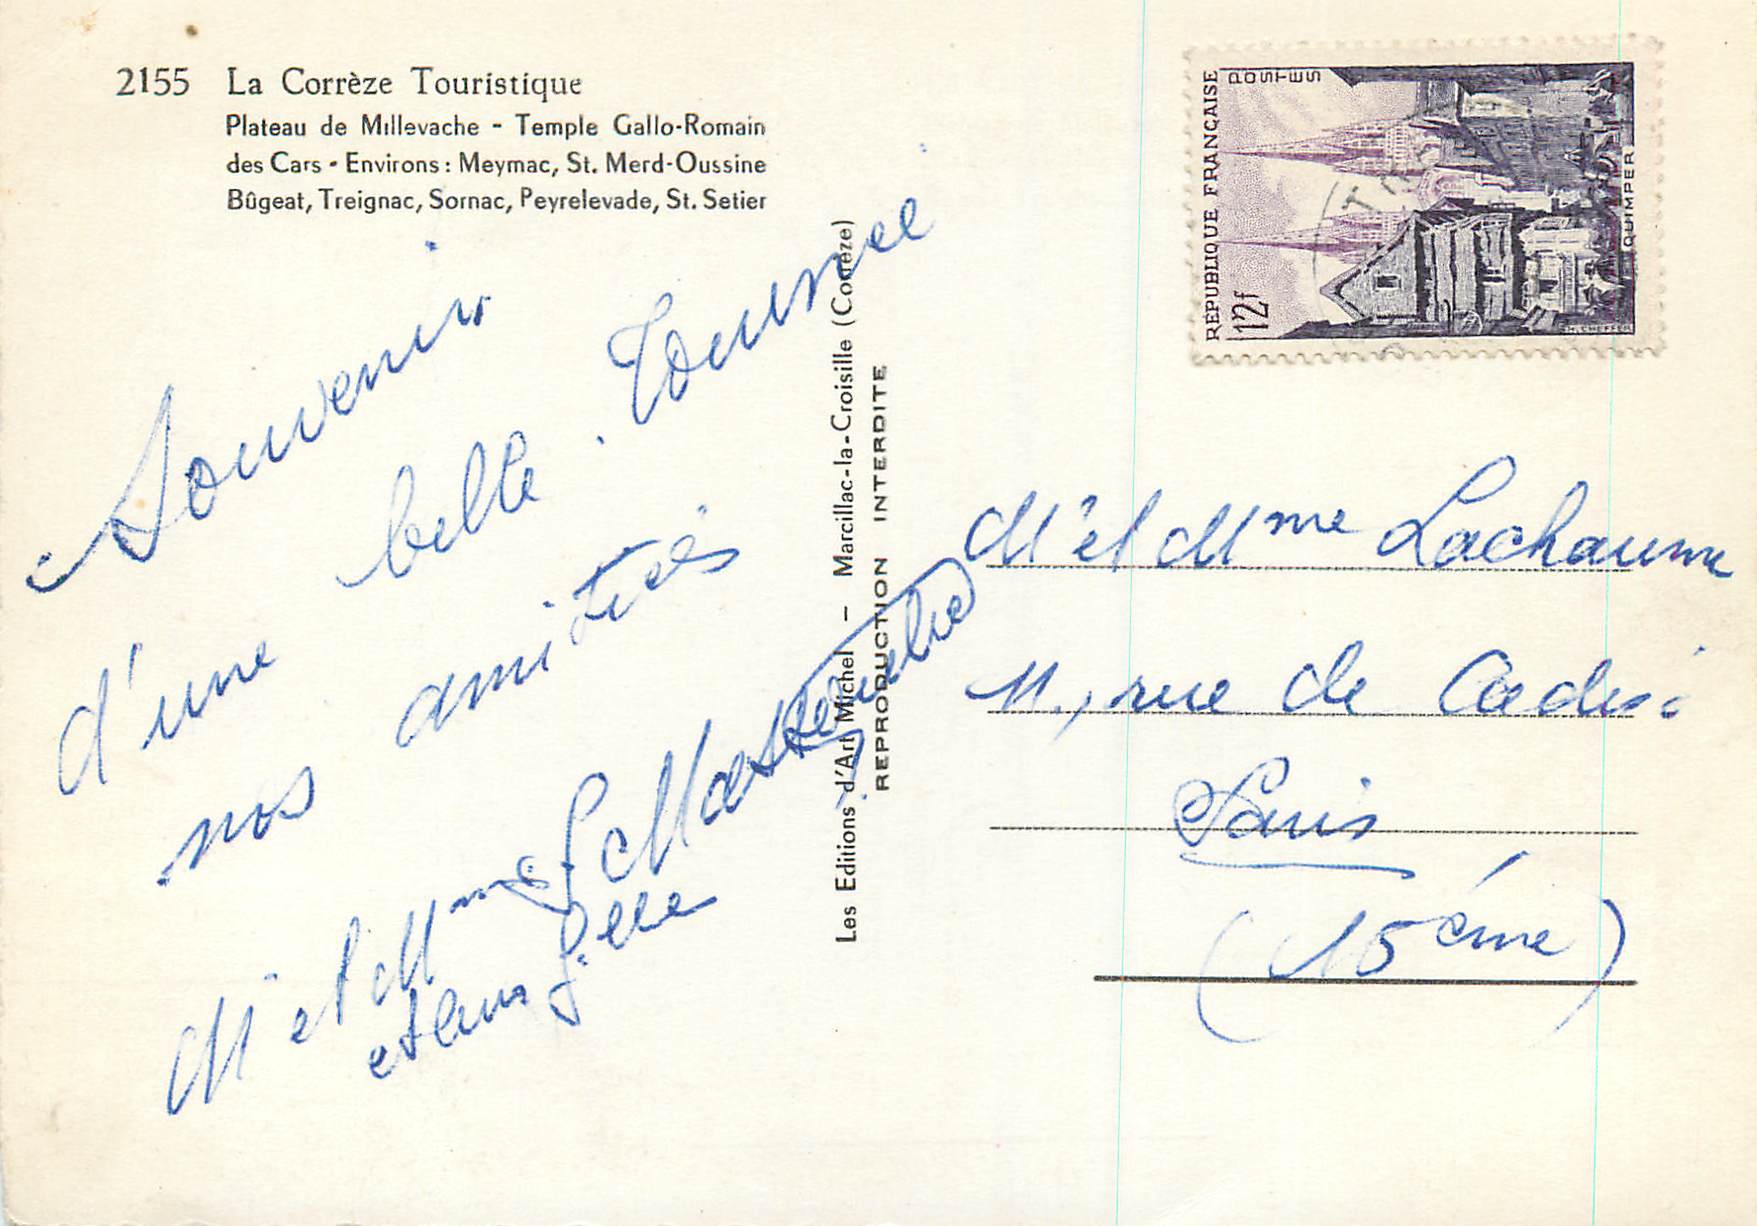 2155 La Corrèze Touristique
Plateau de Millevache - Temple Gallo-Romain
des Cars - Environs : Meymac, St. Merd-Oussine
Bûgeat, Treignac, Sornac, Peyrelevade, St. Setier
Souvenir
d'une belle Tournee
nos amitiés
Mr et Mme
et leur fille
Les Editions d'Art Michel – Marcillac-la-Croisille (Corrèze)
REPRODUCTION INTERDITE
REPUBLIQUE FRANÇAISE
POSTES
12f
QUIMPER
CHEFFER
Mr et Mme Lachaume
11, rue de
Paris
(15ème)